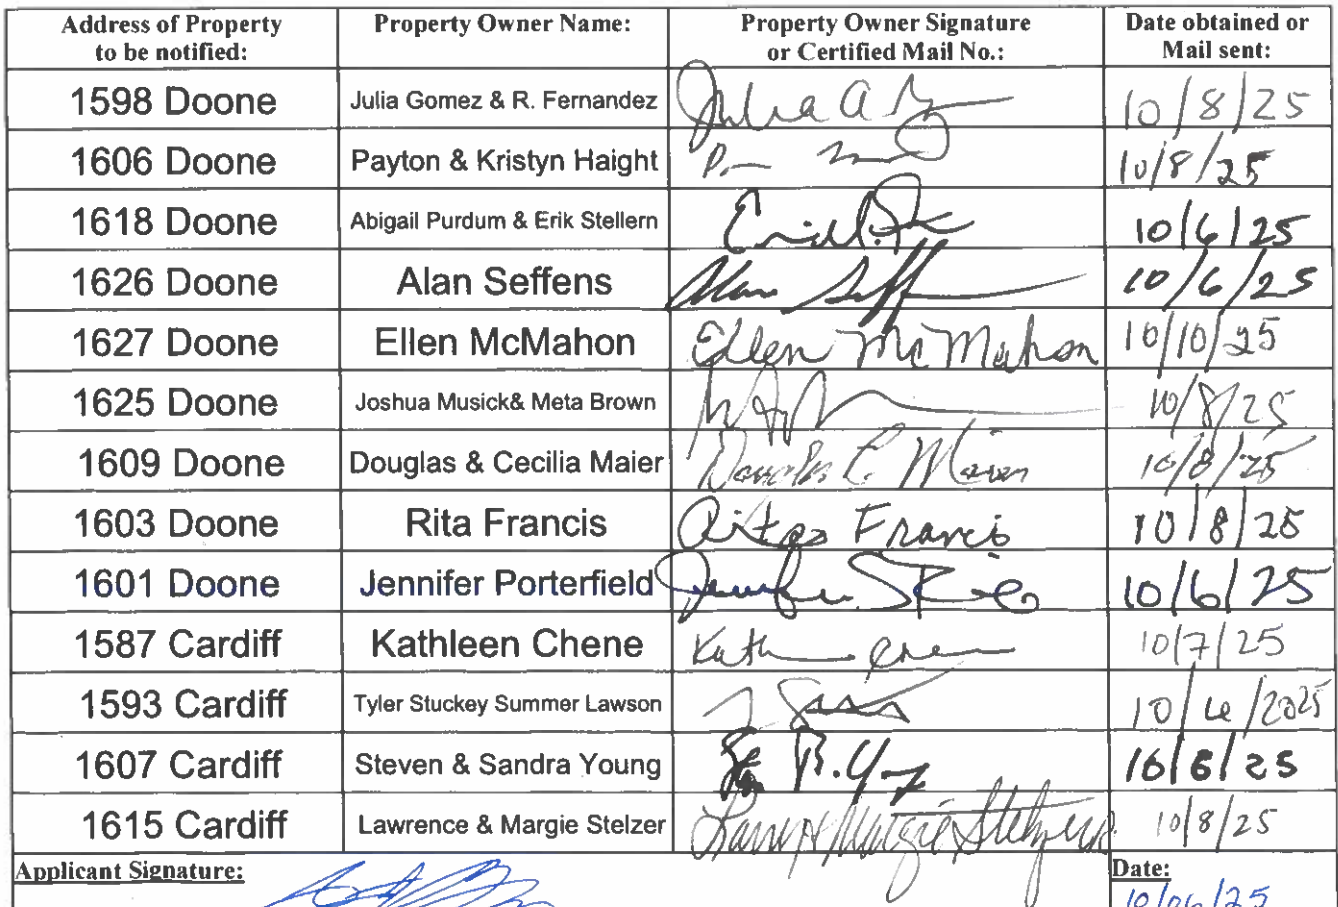 Address of Property Property Owner Name: Property Owner Signature Date obtained or
to be notified: or Certified Mail No.: Mail sent:
1598 Doone Julia Gomez & R. Fernandez Julia A 10/8/25
1606 Doone Payton & Kristyn Haight 10/8/25
1618 Doone Abigail Purdum & Erik Stellern 10/6/25
1626 Doone Alan Seffens Alan Seff 10/6/25
1627 Doone Ellen McMahon Ellen McMahon 10/10/25
1625 Doone Joshua Musick& Meta Brown 10/8/25
1609 Doone Douglas & Cecilia Maier Douglas C. Maier 10/8/25
1603 Doone Rita Francis Rita Francis 10/8/25
1601 Doone Jennifer Porterfield 10/6/25
1587 Cardiff Kathleen Chene Kath Chene 10/7/25
1593 Cardiff Tyler Stuckey Summer Lawson 10/6/2025
1607 Cardiff Steven & Sandra Young 10/8/25
1615 Cardiff Lawrence & Margie Stelzer Larry & Margie Stelzer 10/8/25
Applicant Signature: Date:
10/06/25